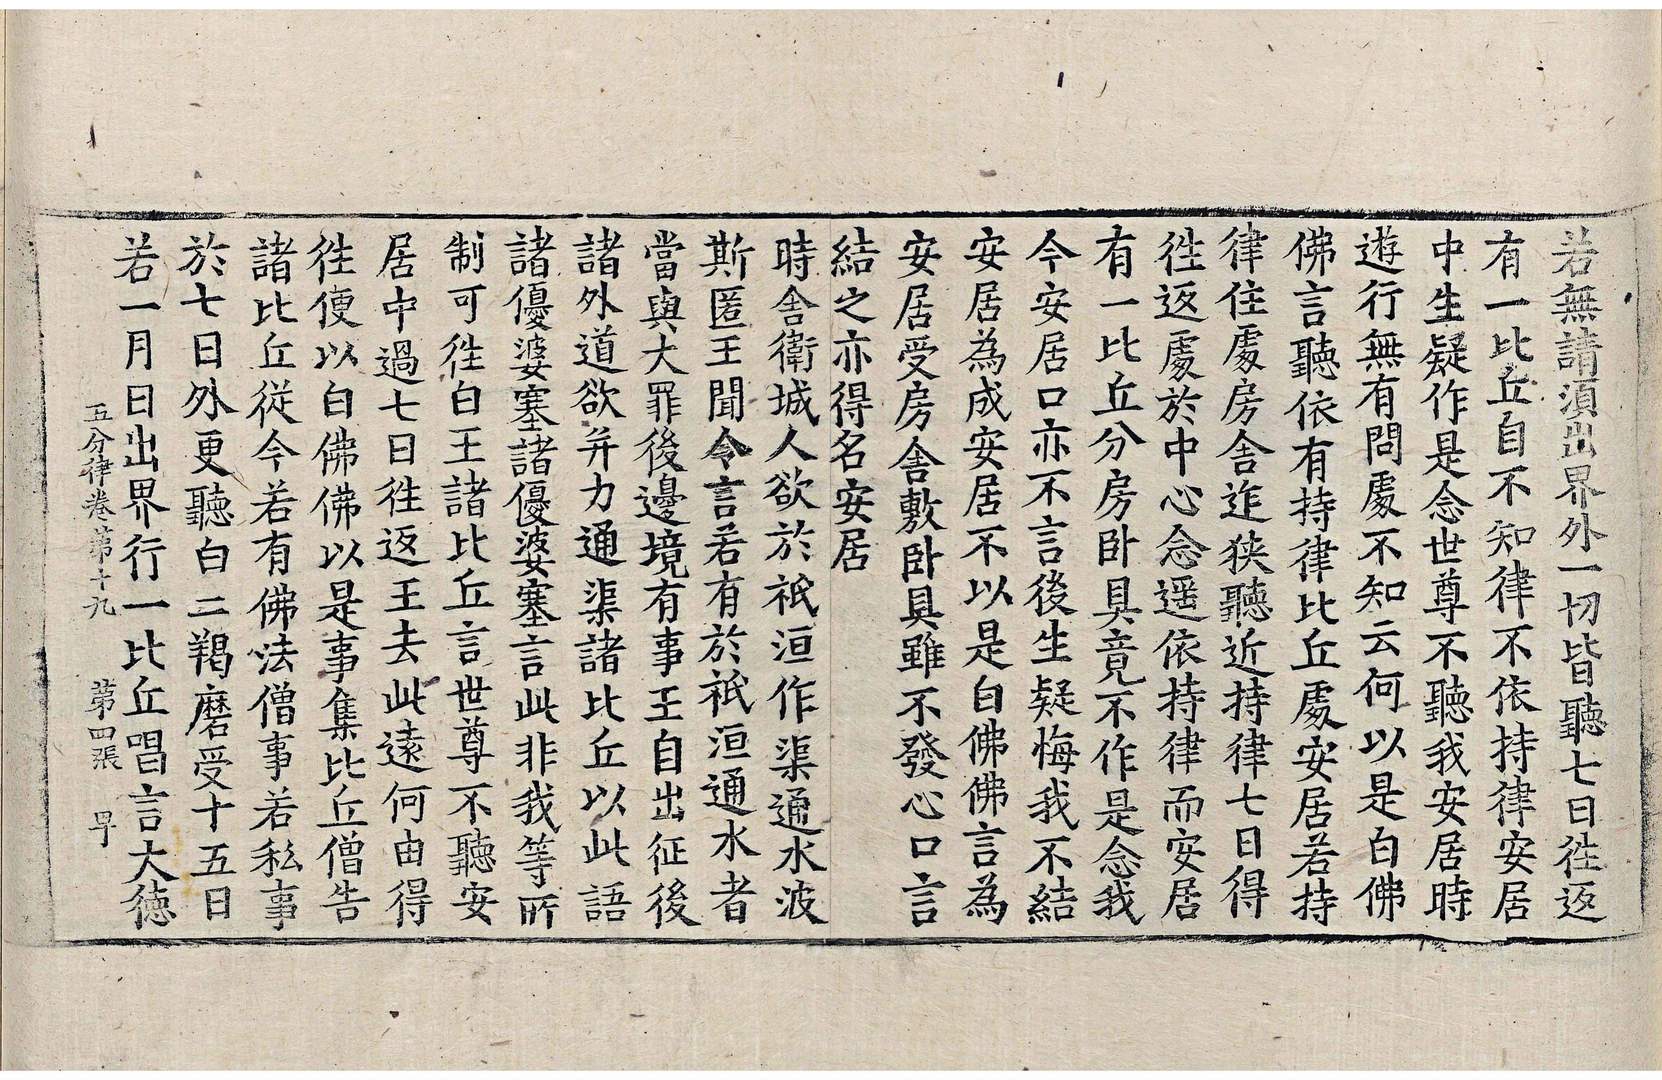 若無請須出界外一切皆聽七日徃返
有一比丘自不知律不依持律安居
中生疑作是念世尊不聽我安居時
遊行無有問處不知云何以是白佛
佛言聽依有持律比丘處安居若持
律住處房舍迮狹聽近持律七日得
徃返處於中心念遥依持律而安居
有一比丘分房卧具竟不作是念我
今安居口亦不言後生疑悔我不結
安居為成安居不以是白佛佛言為
安居受房舍敷卧具雖不發心口言
結之亦得名安居
時舍衛城人欲於祇洹作渠通水波
斯匿王聞令言若有於祇洹通水者
當與大罪後邊境有事王自出征後
諸外道欲并力通渠諸比丘以此語
諸優婆塞諸優婆塞言此非我等所
制可徃白王諸比丘言世尊不聽安
居中過七日徃返王去此遠何由得
徃便以白佛佛以是事集比丘僧告
諸比丘從今若有佛法僧事若私事
於七日外更聽白二羯磨受十五日
若一月日出界行一比丘唱言大徳
五分律卷第十九 第四張 早